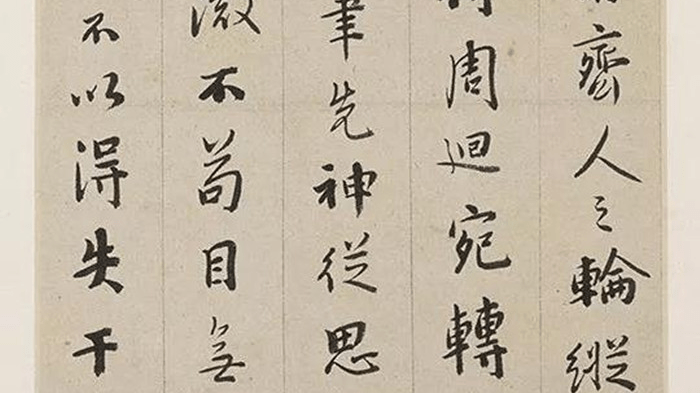 齊人之輪縱
周迴宛轉
筆先神從思
微不苟目無
不以得失干